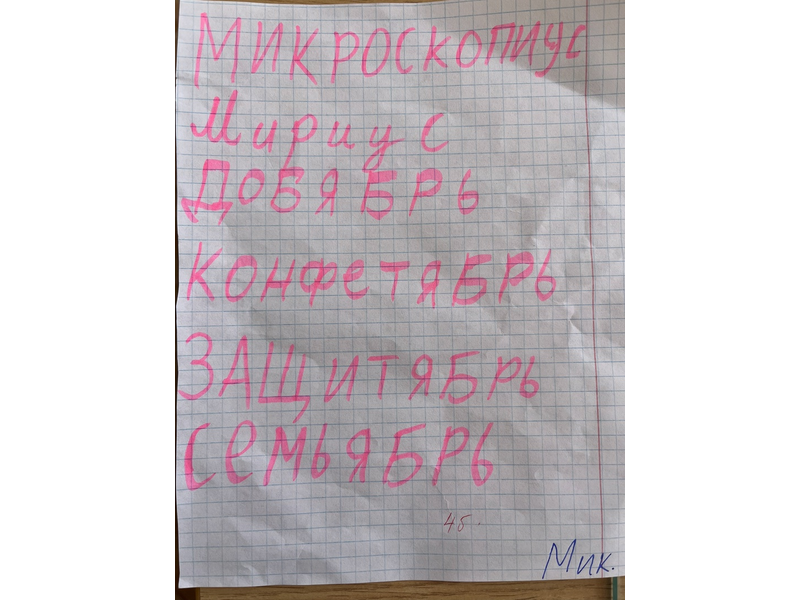 МИКРОСКОПИУС
Мириус
ДОБЯБРЬ
КОНФЕТЯБРЬ
ЗАЩИТЯБРЬ
СЕМЬЯБРЬ
4б.
Мик.